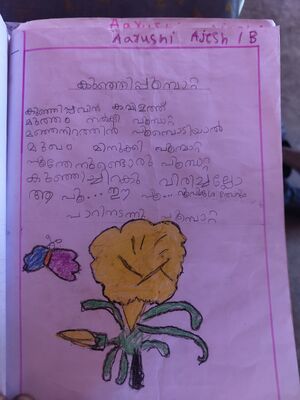 Aarushi Ajesh 1 B
കുഞ്ഞിപൂമ്പാറ്റ
കുഞ്ഞിപ്പൂവിൻ കവിളത്ത്
മുത്തം നൽകി പൂമ്പാറ്റ
മഞ്ഞനിറത്തിൻ പൂമ്പൊടിയാൽ
മുഖം മിനുക്കി പൂമ്പാറ്റ
പൂന്തേനുണ്ടൊരു പൂമ്പാറ്റ
കുഞ്ഞിച്ചിറക് വിരിച്ചല്ലോ
ആ പൂ... ഈ പൂ...
പാറിനടന്നു പൂമ്പാറ്റ